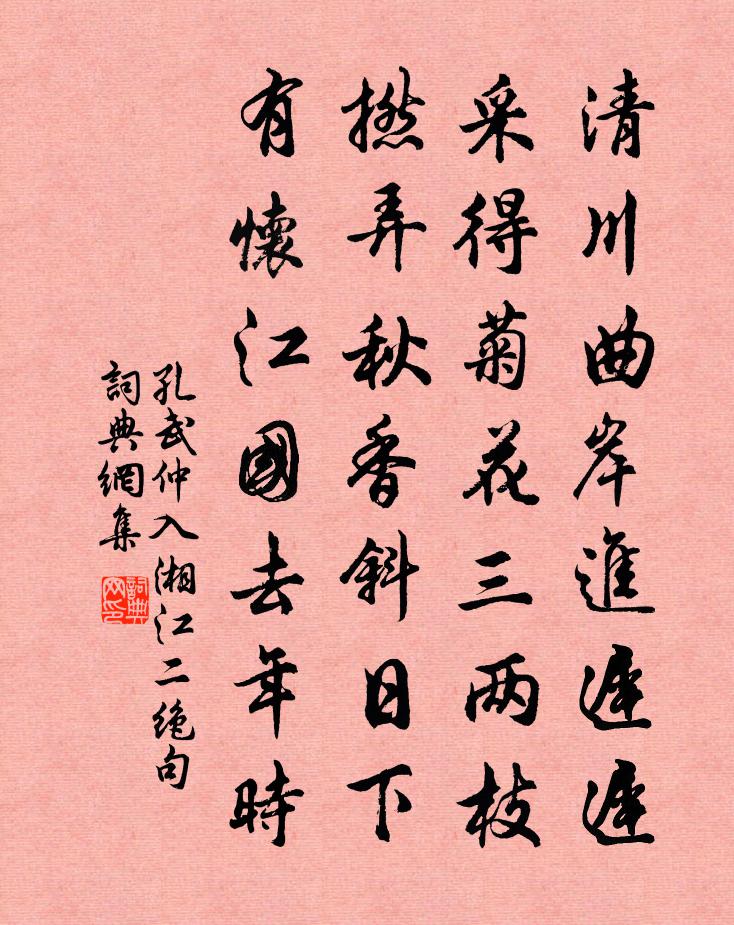 清川曲岸進遲遲
采得菊花三两枝
撚弄秋香斜日下
有懷江國去年時
孔武仲入湘江二绝句
詞典網集
詞典网印